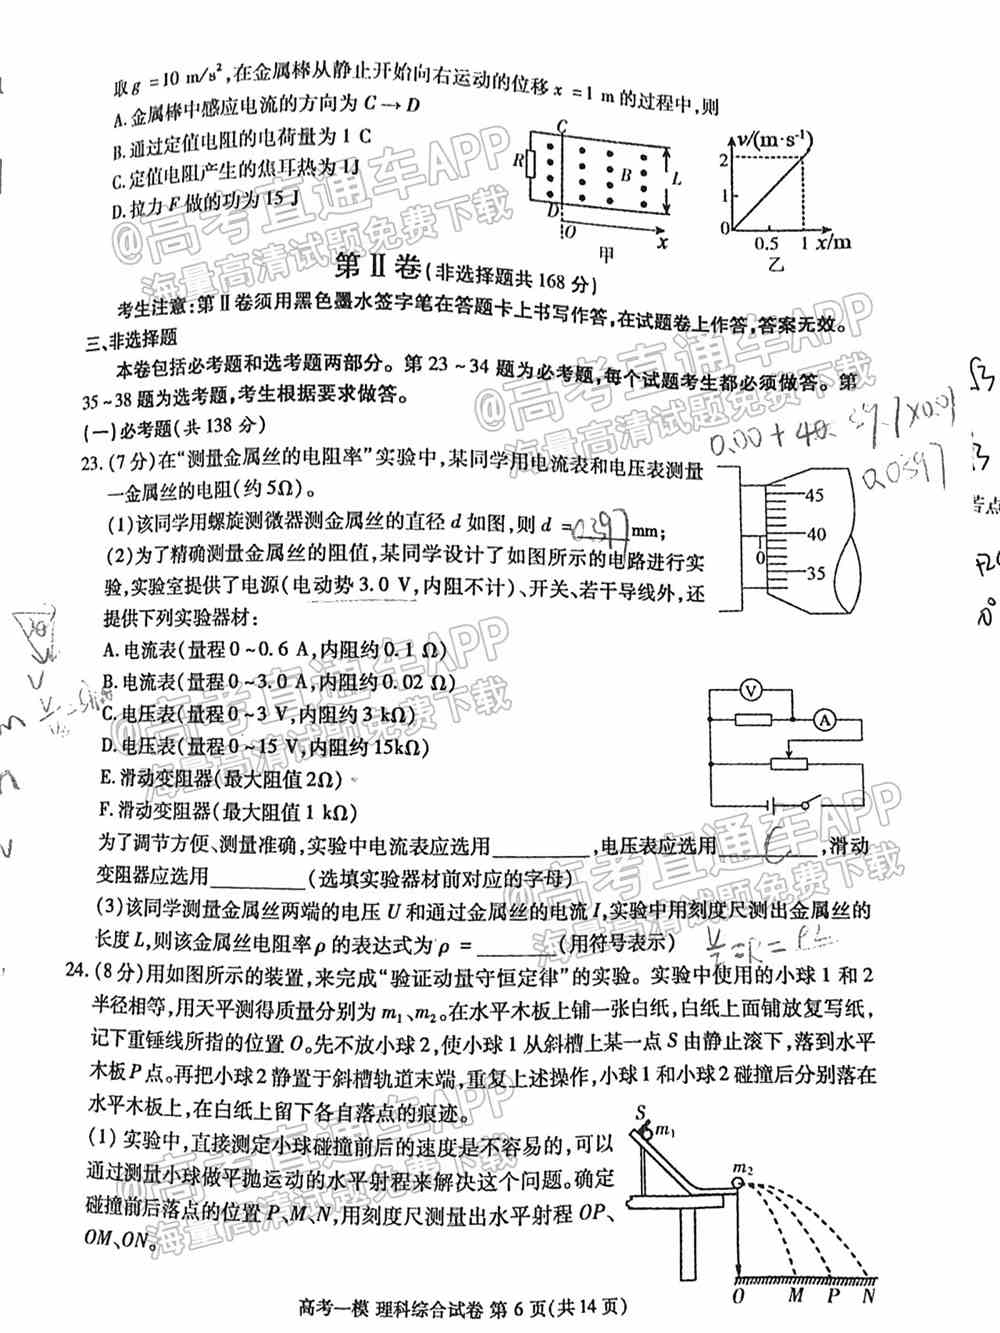 取g=10 m/s²,在金属棒从静止开始向右运动的位移x=1 m的过程中,则
A.金属棒中感应电流的方向为C→D
B.通过定值电阻的电荷量为1 C
C.定值电阻产生的焦耳热为1J
D.拉力F做的功为15 J
C
R
B
L
D
O
x
甲
v/(m·s⁻¹)
2
1
0
0.5
1
x/m
乙
第Ⅱ卷(非选择题共168分)
考生注意:第Ⅱ卷须用黑色墨水签字笔在答题卡上书写作答,在试题卷上作答,答案无效。
三、非选择题
本卷包括必考题和选考题两部分。第23~34题为必考题,每个试题考生都必须做答。第
35~38题为选考题,考生根据要求做答。
(一)必考题(共138分)
23.(7分)在“测量金属丝的电阻率”实验中,某同学用电流表和电压表测量
一金属丝的电阻(约5Ω)。
(1)该同学用螺旋测微器测金属丝的直径d如图,则d=0.397mm;
(2)为了精确测量金属丝的阻值,某同学设计了如图所示的电路进行实
验,实验室提供了电源(电动势3.0 V,内阻不计)、开关、若干导线外,还
提供下列实验器材:
A.电流表(量程0~0.6 A,内阻约0.1 Ω)
B.电流表(量程0~3.0 A,内阻约0.02 Ω)
C.电压表(量程0~3 V,内阻约3 kΩ)
D.电压表(量程0~15 V,内阻约15kΩ)
E.滑动变阻器(最大阻值2Ω)
F.滑动变阻器(最大阻值1 kΩ)
为了调节方便、测量准确,实验中电流表应选用________,电压表应选用___C___,滑动
变阻器应选用________(选填实验器材前对应的字母)
(3)该同学测量金属丝两端的电压U和通过金属丝的电流I,实验中用刻度尺测出金属丝的
长度L,则该金属丝电阻率ρ的表达式为ρ=______(用符号表示)
0
45
40
35
0.0397
V
A
24.(8分)用如图所示的装置,来完成“验证动量守恒定律”的实验。实验中使用的小球1和2
半径相等,用天平测得质量分别为m₁、m₂。在水平木板上铺一张白纸,白纸上面铺放复写纸,
记下重锤线所指的位置O。先不放小球2,使小球1从斜槽上某一点S由静止滚下,落到水平
木板P点。再把小球2静置于斜槽轨道末端,重复上述操作,小球1和小球2碰撞后分别落在
水平木板上,在白纸上留下各自落点的痕迹。
(1)实验中,直接测定小球碰撞前后的速度是不容易的,可以
通过测量小球做平抛运动的水平射程来解决这个问题。确定
碰撞前后落点的位置P、M、N,用刻度尺测量出水平射程OP、
OM、ON。
S
m₁
m₂
O
M
P
N
高考一模 理科综合试卷 第6页(共14页)
@高考直通车APP
海量高清试题免费下载
@高考直通车APP
海量高清试题免费下载
@高考直通车APP
海量高清试题免费下载
@高考直通车APP
海量高清试题免费下载
@高考直通车APP
海量高清试题免费下载